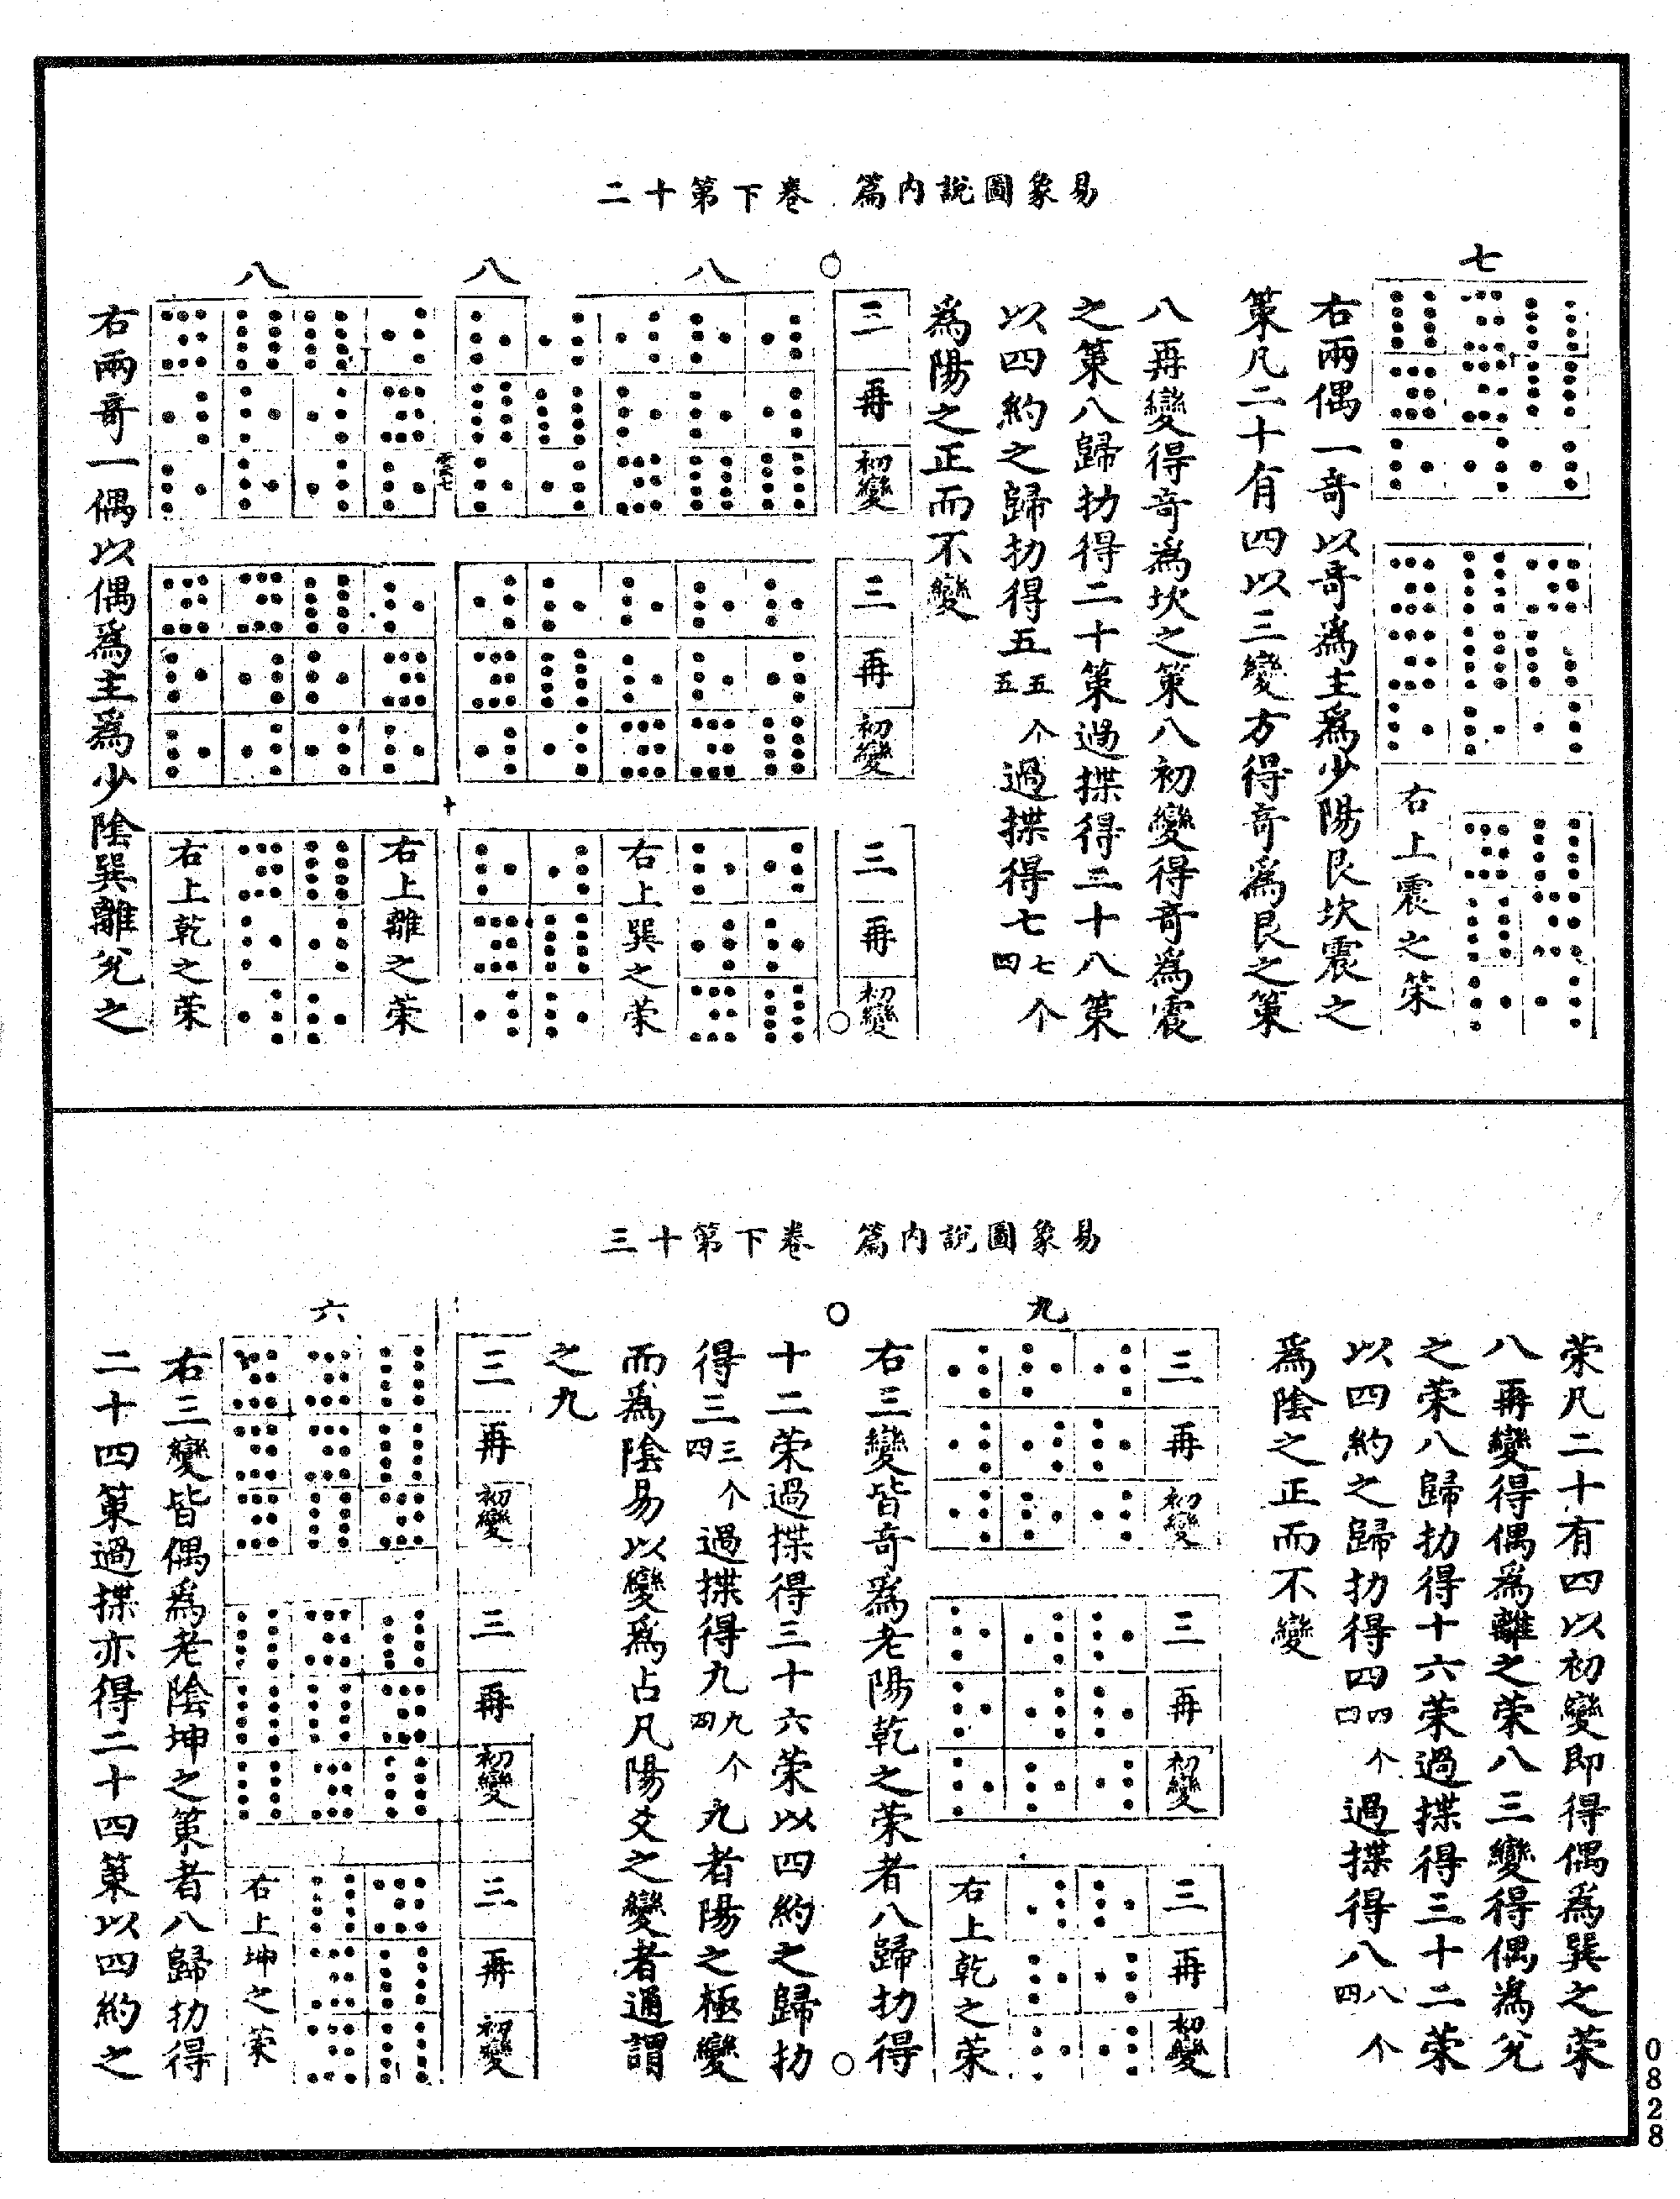 易象圖說內篇 卷下第十二
七
右上震之策
右兩偶一奇以奇爲主爲少陽艮坎震之
策凡二十有四以三變方得奇爲艮之策
八再變得奇爲坎之策八初變得奇爲震
之策八歸扐得二十策過揲得二十八策
以四約之歸扐得五五五个過揲得七七四个
爲陽之正而不變
○
三 再 初變
三 再 初變
三 再 初變
○
八
右上巽之策
八
八
右上離之策
右上乾之策
右兩奇一偶以偶爲主爲少陰巽離兌之
易象圖說內篇 卷下第十三
策凡二十有四以初變即得偶爲巽之策
八再變得偶爲離之策八三變得偶爲兌
之策八歸扐得十六策過揲得三十二策
以四約之歸扐得四四四个過揲得八八四个
爲陰之正而不變
九
三 再 初變
三 再 初變
三 再 初變
右上乾之策
○
○
右三變皆奇爲老陽乾之策者八歸扐得
十二策過揲得三十六策以四約之歸扐
得三三四个過揲得九九四个九者陽之極變
而爲陰易以變爲占凡陽爻之變者通謂
之九
三 再 初變
三 再 初變
三 再 初變
六
右上坤之策
右三變皆偶爲老陰坤之策者八歸扐得
二十四策過揲亦得二十四策以四約之
0828